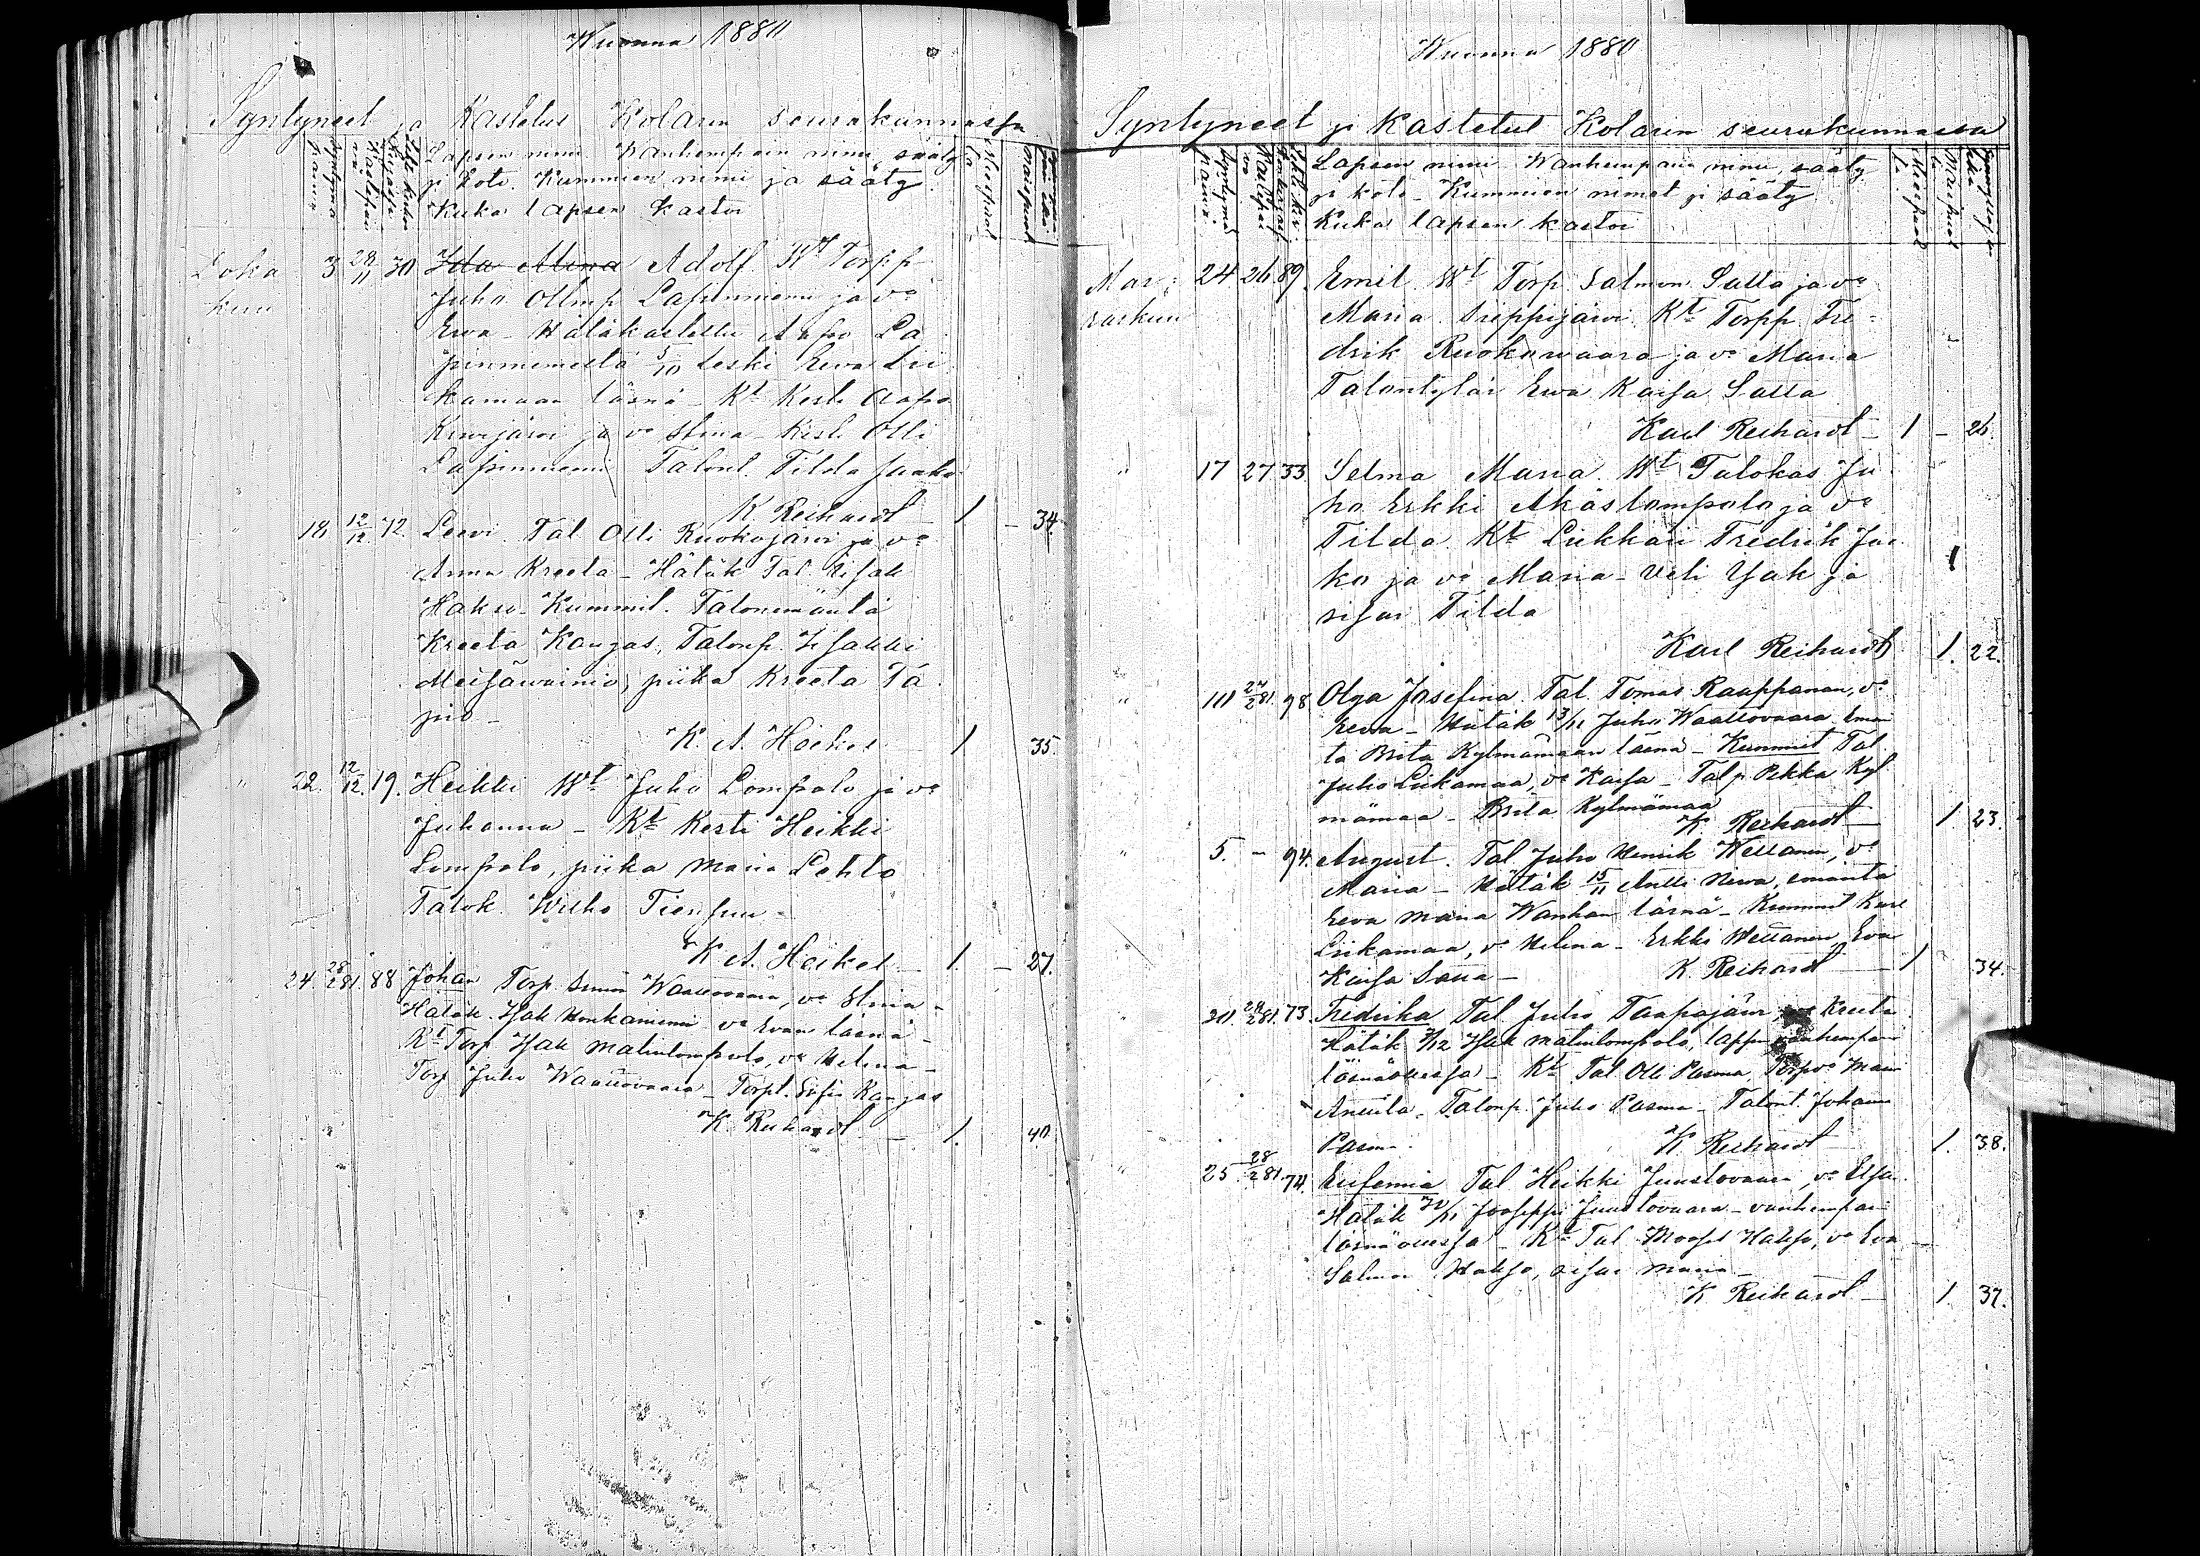 Wuonna 1880
Syntyneet ja Kastetut Kolarin seurakunnassa
Lapsen nimi Wanhempain nimi, sääty
ja koti. Kummien nimi ja sääty
Kuka lapsen kastoi
Loka 3 28/11 30 Ida Mina Adolf Wt Torpp
kuu Juho Ollinp Lapinniemi ja vo
Ewa - Hätäkastettu Aapo La
pinniemeltä 5/10 Leski Ewa Lii
kamaan läsnä - Kt Kesti Aapo
ja vo Stina - Kesti Olli
Lapinniemi Talont. Tilda Jaako
K Reihardt - 1 - 34.
" 18 12/12 72. Leevi. Tal Olli Ruokojärvi ja vo
Anna Kreeta - Hätäk Tal
Haku - Kummit. Talonemäntä
Kreeta Kangas, Talonp. Isakki
piika Kreeta Ta
pio -
K. A. Heikel 1 35.
" 22. 12/12. 19. Heikki Wt Juho Lompolo ja vo
Johanna - Kt Kesti Heikki
Lompolo, piika Maria Lehto
Talok. Wilho Tiensuu -
K A. Heikel - 1. - 27.
24. 28/2 81. 88 Johan Torp Simon Waattovaara, vo Stina -
Hätäk. Isak Honkaniemi vo Evan läsnä -
Kt Torp Isak Matinlompolo, vo Helena -
Torp Juho Waattovaara - Torpt. Kangas
K. Reihardt - 1. 40.
Wuonna 1880
Syntyneet ja Kastetut Kolarin seurakunnassa
Lapsen nimi Wanhempain nimi, sääty
ja koti - Kummien nimet ja sääty
Kuka lapsen kastoi
Mar- 24 26 89. Emil. Wt Torp Salmon Salla ja vo
raskuu Maria Sieppijärvi. Kt Torpp Fre-
drik Ruokowaara ja vo Maria
Talontytär Ewa Kaisa Salla
Karl Reihardt - 1 - 26.
" 17 27 33. Selma Maria. Wt Talokas Ju
ho Erkki Äkäslompolo ja vo
Tilda. Kt Lukkari Fredrik Jaa
ko ja vo Maria - Veli Isak ja
sisar Tilda
Karl Reihardt 1. 22.
" 10 24/2 81. 98 Olga Josefina Tal Tomas Raappanan, vo
Eewa - Hätäk 13/11 Juho Waattovaara Eman
ta Brita Kylmämaan läsnä - Kummit Tal
Juho Liikamaa, vo Kaisa - Tal p. Pekka Kyl
mämaa - Brita Kylmämaa
K. Reihardt 1 23.
" 5. - 94. August. Tal Juho Henrik Wettanen, vo
Maria - Hätäk 15/11 Antti Niwa, emäntä
Eeva Maria Wanhan läsnä - Kummit Karl
Liikamaa, vo Helena - Erkki Wettanen Eva
Kaisa Salla - K. Reihardt - 1 34.
20. 28/2 81. 73. Fredrika Tal Juho Taapajärvi, vo Kreeta
Hätäk Isak Matinlompolo, lapsen vanhempain
läsnäollessa - Kt Tal Olli Pasma, Torp vo Maria
Anttila. Talonp. Juho Pasma - Talont. Johanna
Pasma. K Reihardt 1. 38.
25 28/2 81. 74. Eufemia Tal Heikki Juustovaara, vo Elsa
Hätäk Jooseppi Juustovaara - vanhempain
läsnäollessa - Kt Tal Mooses Haksso, vo Eva -
Salmon Haksso, sisar Maria -
K Reihardt - 1. 37.